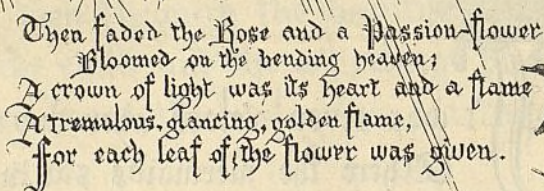 Then faded the Rose and a Passion-flower
Bloomed on the bending heaven;
A crown of light was its heart and a flame
A tremulous, glancing, golden flame,
For each leaf of the flower was given.